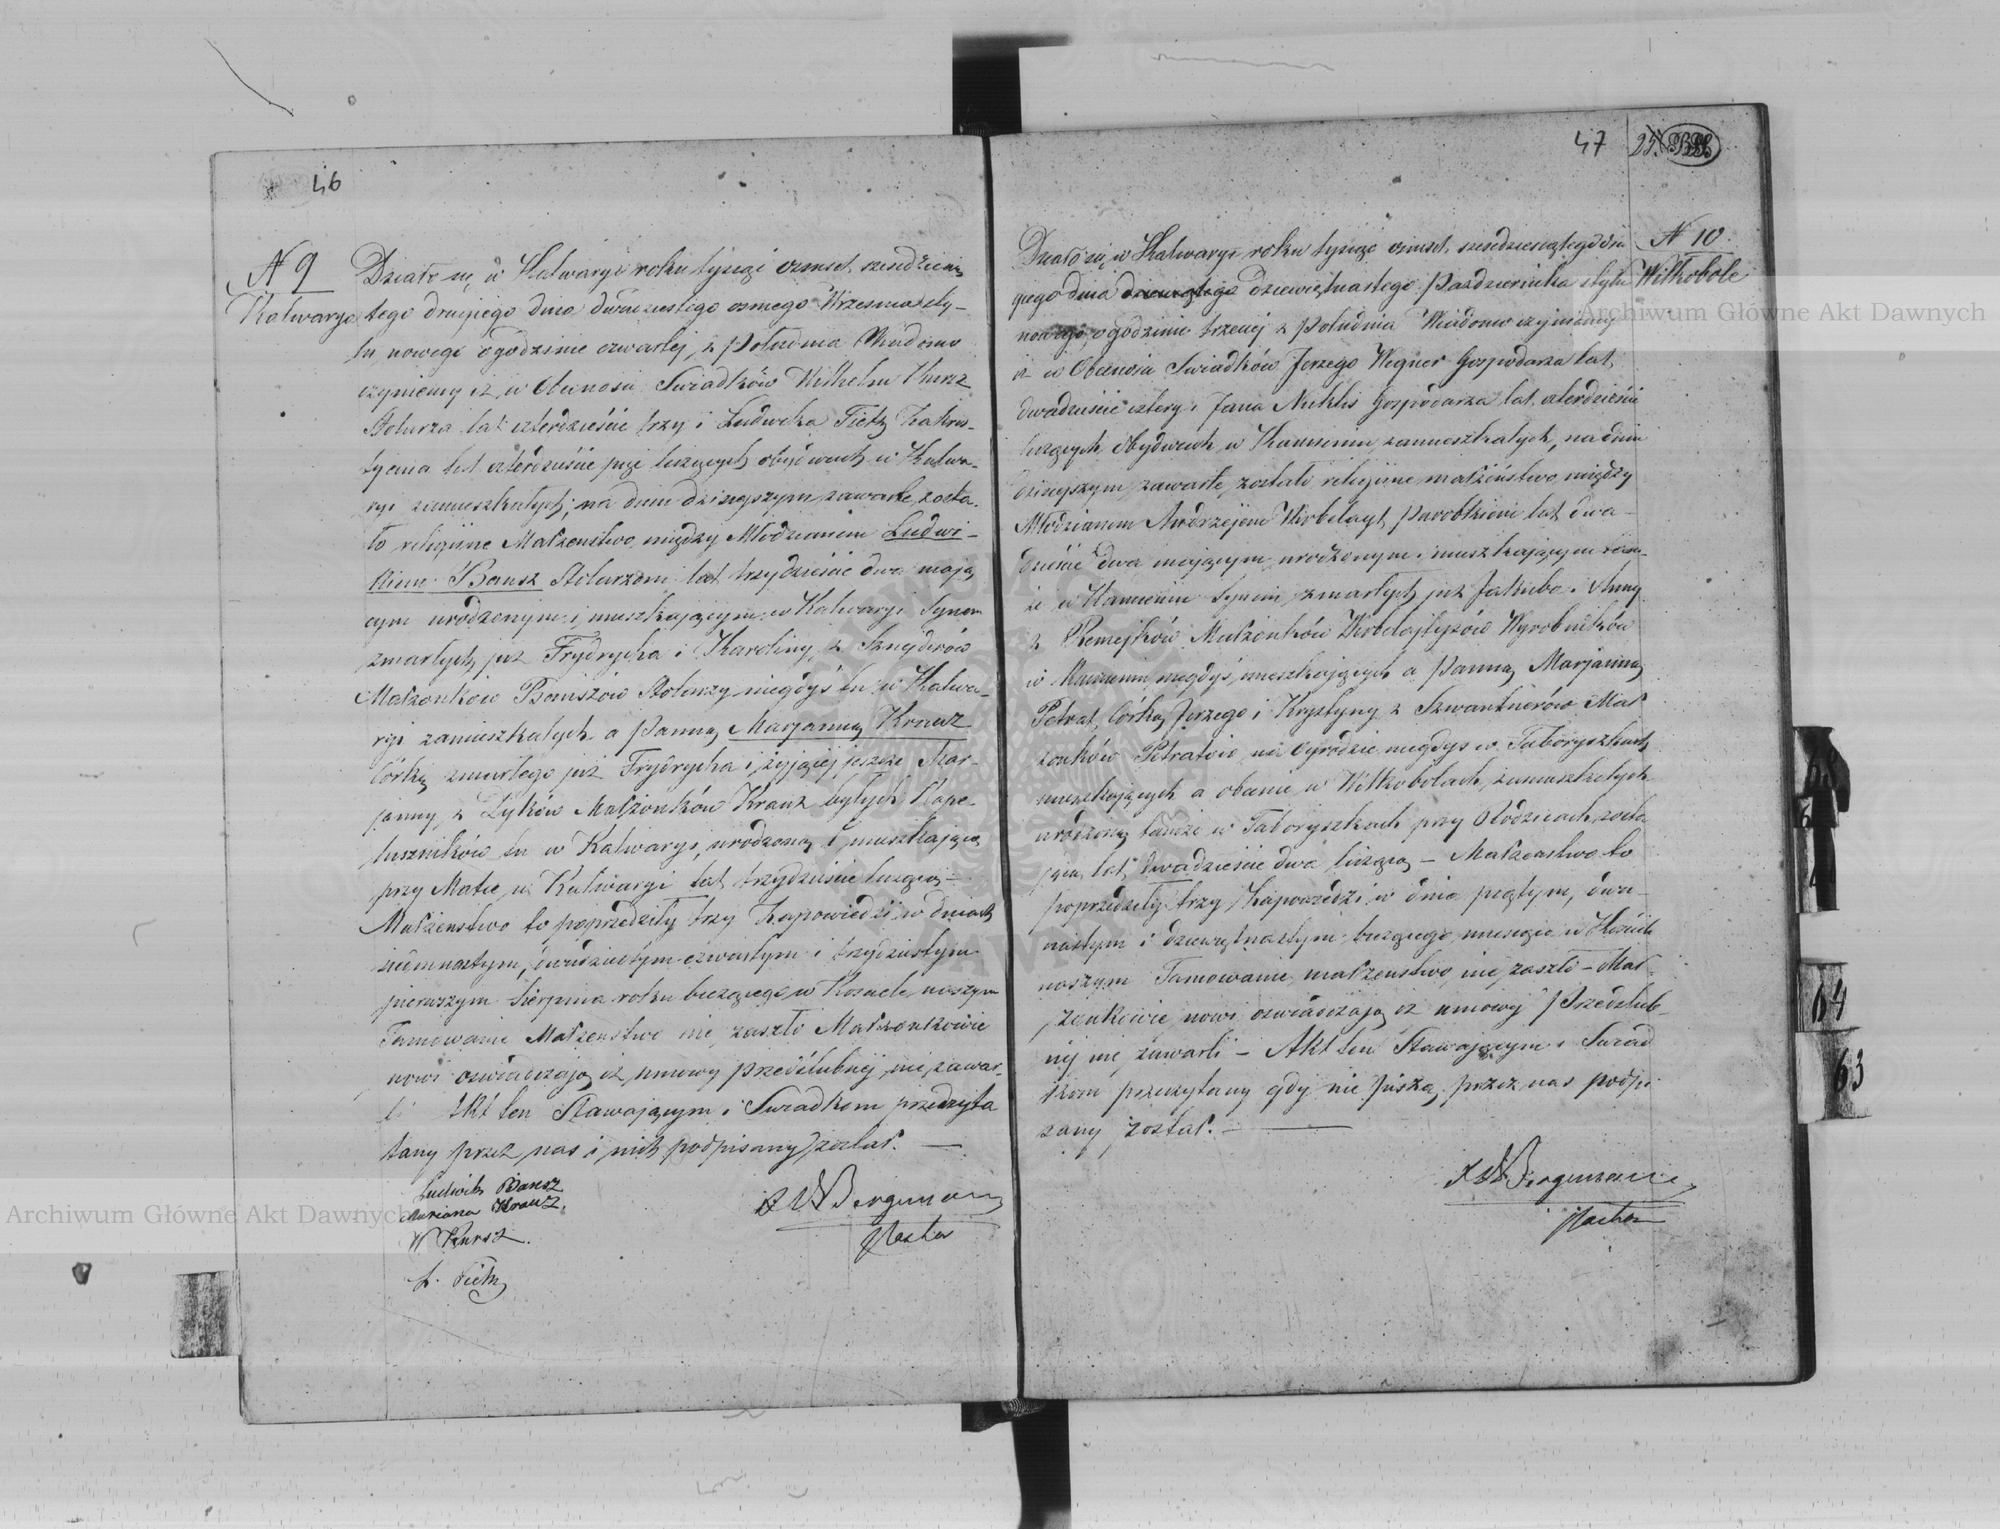 46
N 9
Kalwarya
Działo się w Kalwaryi roku tysiąc ośmset sześdziesią
tego drugiego dnia dwudziestego osmego Wrzesnia sty-
lu nowego o godzinie czwartej z południa Wiadomo
czyniemy iż w Obecnosci Swiadków Wilhelm Kursz
Stolarza lat czterdzieście trzy i Ludwika Tietz Zakrys-
tyana lat czterdzieście pięc liczących obydwuch w Kalwa-
ryi zamieszkałych; na dniu dzisiejszym zawarte zosta-
ło religijne Małżenstwo między Młodzianem Ludwi-
kiem Bansz Stolarzem lat trzydzieście dwa mają
cym urodzonym i mieszkającym w Kalwaryi Synem
zmarłych już Frydrycha i Karoliny z Sznyderów
Małżonków Banszów Stolarzy niegdyś tu w Kalwa-
ryi zamieszkałych a Panną Marjanną Krauz
Córką zmarłego już Frydrycha i żyjącej jeszcze Mar-
janny z Dyków Małżonków Krauz byłych Kape-
luszników tu w Kalwaryi, urodzoną i mieszkającą
przy Matce w Kalwaryi lat trzydzieście liczącą –
Małżenstwo to poprzedziły trzy Zapowiedzi w dniach
siedmnastym, dwudziestym czwartym i trzydziestym
pierwszym Sierpnia roku bieżącego w Kosciele naszym
Tamowanie Małżenstwo nie zaszło Małżonkowie
nowi oswiadczają iż umowy przedślubnej nie zawar-
li Akt ten Stawającym i Swiadkom przeczyta
tany przez nas i nich podpisany został. —
Ludwik Bansz
Mariana Krauz
W Kursz.
L. Tietz
Bergmann
Pastor
47
25.
N 10.
Wilkobole
Działo się w Kalwaryi roku tysiąc ośmset sześdziesiątego dru
giego dnia dziewiętnastego Pazdziernika stylu
nowego o godzinie trzeciej z południa Wiadomo czyniemy
iż w Obecnosci Swiadków Jerzego Wegner Gospodarza lat
dwadzieście cztery i Jana Niklis Gospodarza lat czterdzieście
liczących obydwuch w zamieszkałych, na dniu
dzisiejszym zawarte zostało religijne małżeństwo między
Młodzianem Andrzejem Wirbelayt Parobkiem lat dwa-
dzieście dwa mającym urodzonym i mieszkającym
w Synem zmarłych już Jakuba i Anny
z Remejków Małżonków Wyrobników
w niegdyś mieszkających a Panną Marjanną
Petrat Córką Jerzego i Krystyny z Szwantnerów Mał
żonków Petratów na Ogrodzie niegdys w Taboryszkach
mieszkających a obecnie w Wilkobolach zamieszkałych
urodzoną także w Taboryszkach przy Rodzicach zosta
jącą lat dwadzieście dwa liczącą – Małżenstwo to
poprzedziły trzy Zapowiedzi w dnia piątym, dwu-
nastym i dziewiętnastym bieżącego miesiąca w Kosciele
naszym Tamowanie małżenstwo nie zaszło – Mał-
żonkowie nowi oswiadczają iż umowy Przedslub-
nej nie zawarli – Akt ten Stawającym i Swiad
kom przeczytany gdy nie piszą, przez nas podpi
sany został. —
Bergmann
Pastor
63
64
Archiwum Główne Akt Dawnych
Archiwum Główne Akt Dawnych